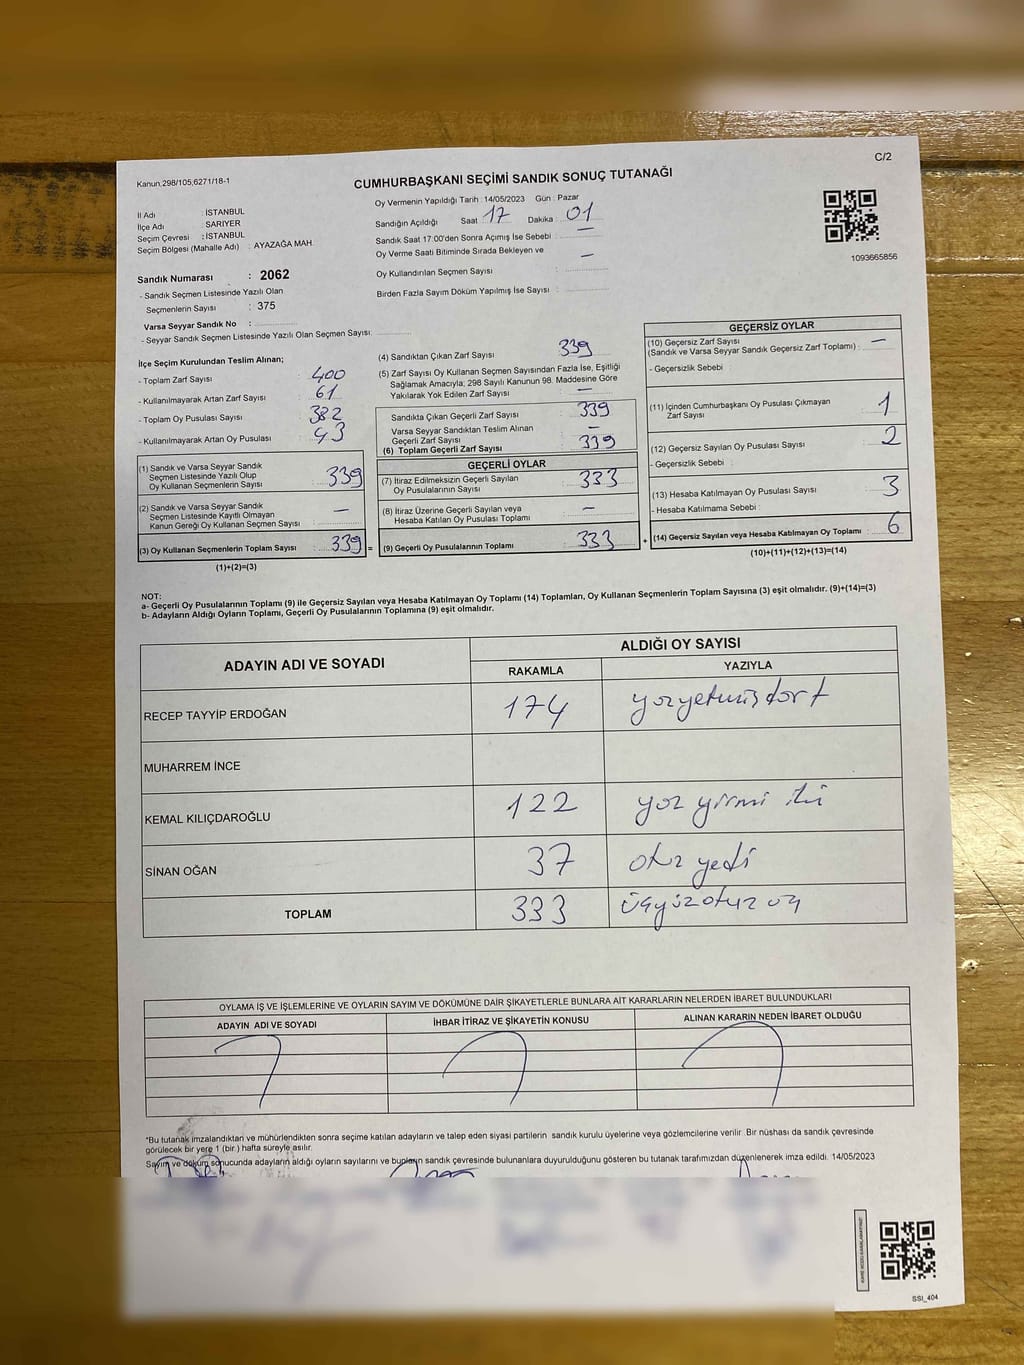 C/2
Kanun;298/105;6271/18-1
CUMHURBAŞKANI SEÇİMİ SANDIK SONUÇ TUTANAĞI
İl Adı : İSTANBUL
İlçe Adı : SARIYER
Seçim Çevresi : İSTANBUL
Seçim Bölgesi (Mahalle Adı) : AYAZAĞA MAH.
Oy Vermenin Yapıldığı Tarih : 14/05/2023 Gün : Pazar
Sandığın Açıldığı Saat : 17 Dakika : 01
Sandık Saat 17:00'den Sonra Açımış İse Sebebi : —
Oy Verme Saati Bitiminde Sırada Bekleyen ve
Oy Kullandırılan Seçmen Sayısı : —
Birden Fazla Sayım Döküm Yapılmış İse Sayısı :
1093665856
Sandık Numarası : 2062
- Sandık Seçmen Listesinde Yazılı Olan
Seçmenlerin Sayısı : 375
Varsa Seyyar Sandık No :
- Seyyar Sandık Seçmen Listesinde Yazılı Olan Seçmen Sayısı:
İlçe Seçim Kurulundan Teslim Alınan;
- Toplam Zarf Sayısı : 400
- Kullanılmayarak Artan Zarf Sayısı : 61
- Toplam Oy Pusulası Sayısı : 382
- Kullanılmayarak Artan Oy Pusulası : 43
(1) Sandık ve Varsa Seyyar Sandık
Seçmen Listesinde Yazılı Olup
Oy Kullanan Seçmenlerin Sayısı : 339
(2) Sandık ve Varsa Seyyar Sandık
Seçmen Listesinde Kayıtlı Olmayan
Kanun Gereği Oy Kullanan Seçmen Sayısı : —
(3) Oy Kullanan Seçmenlerin Toplam Sayısı : 339 =
(1)+(2)=(3)
(4) Sandıktan Çıkan Zarf Sayısı : 339
(5) Zarf Sayısı Oy Kullanan Seçmen Sayısından Fazla İse, Eşitliği
Sağlamak Amacıyla; 298 Sayılı Kanunun 98. Maddesine Göre
Yakılarak Yok Edilen Zarf Sayısı : —
Sandıkta Çıkan Geçerli Zarf Sayısı : 339
Varsa Seyyar Sandıktan Teslim Alınan
Geçerli Zarf Sayısı : —
(6) Toplam Geçerli Zarf Sayısı : 339
GEÇERLİ OYLAR
(7) İtiraz Edilmeksizin Geçerli Sayılan
Oy Pusulalarının Sayısı : 333
(8) İtiraz Üzerine Geçerli Sayılan veya
Hesaba Katılan Oy Pusulası Toplamı : —
(9) Geçerli Oy Pusulalarının Toplamı : 333 +
GEÇERSİZ OYLAR
(10) Geçersiz Zarf Sayısı
(Sandık ve Varsa Seyyar Sandık Geçersiz Zarf Toplamı) : —
- Geçersizlik Sebebi :
(11) İçinden Cumhurbaşkanı Oy Pusulası Çıkmayan
Zarf Sayısı : 1
(12) Geçersiz Sayılan Oy Pusulası Sayısı : 2
- Geçersizlik Sebebi :
(13) Hesaba Katılmayan Oy Pusulası Sayısı : 3
- Hesaba Katılmama Sebebi :
(14) Geçersiz Sayılan veya Hesaba Katılmayan Oy Toplamı : 6
(10)+(11)+(12)+(13)=(14)
NOT:
a- Geçerli Oy Pusulalarının Toplamı (9) ile Geçersiz Sayılan veya Hesaba Katılmayan Oy Toplamı (14) Toplamları, Oy Kullanan Seçmenlerin Toplam Sayısına (3) eşit olmalıdır. (9)+(14)=(3)
b- Adayların Aldığı Oyların Toplamı, Geçerli Oy Pusulalarının Toplamına (9) eşit olmalıdır.
ADAYIN ADI VE SOYADI
ALDIĞI OY SAYISI
RAKAMLA YAZIYLA
RECEP TAYYİP ERDOĞAN 174 yozyetmişdort
MUHARREM İNCE
KEMAL KILIÇDAROĞLU 122 yoz yirmi iki
SİNAN OĞAN 37 otuz yedi
TOPLAM 333 üçyüzotuz üç
OYLAMA İŞ VE İŞLEMLERİNE VE OYLARIN SAYIM VE DÖKÜMÜNE DAİR ŞİKAYETLERLE BUNLARA AİT KARARLARIN NELERDEN İBARET BULUNDUKLARI
ADAYIN ADI VE SOYADI İHBAR İTİRAZ VE ŞİKAYETİN KONUSU ALINAN KARARIN NEDEN İBARET OLDUĞU
*Bu tutanak imzalandıktan ve mühürlendikten sonra seçime katılan adayların ve talep eden siyasi partilerin sandık kurulu üyelerine veya gözlemcilerine verilir. Bir nüshası da sandık çevresinde
görülecek bir yere 1 (bir ) hafta süreyle asılır.
Sayım ve döküm sonucunda adayların aldığı oyların sayılarını ve bunların sandık çevresinde bulunanlara duyurulduğunu gösteren bu tutanak tarafımızdan düzenlenerek imza edildi. 14/05/2023
SSI_404